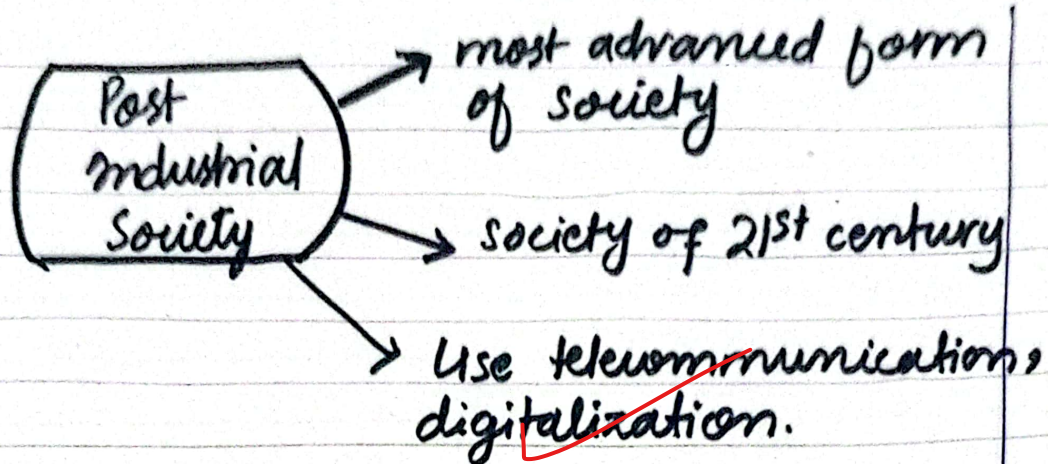 Post
Industrial
Society
most advanced form
of society
society of 21st century
Use telecommunication,
digitalization.